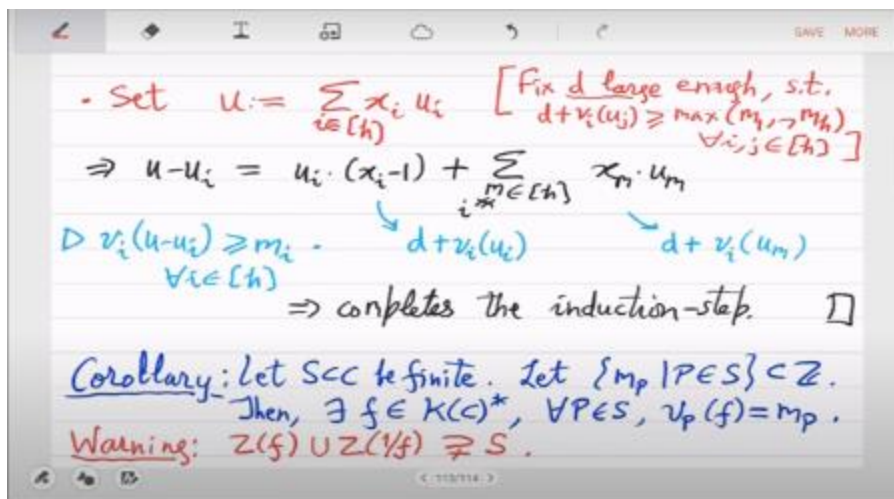 SAVE MORE
• Set u := ∑_{i∈[h]} x_i u_i [Fix d large enough, s.t.
d+v_i(u_j) ⩾ max(m_1,⋯,m_h)
∀i,j∈[h] ]
⇒ u-u_i = u_i·(x_i-1) + ∑_{i≠m∈[h]} x_m·u_m
▷ v_i(u-u_i) ⩾ m_i. d+v_i(u_i) d+v_i(u_m)
∀i∈[h]
⇒ completes the induction-step. □
Corollary: Let S⊂C be finite. Let {m_P | P∈S} ⊂ ℤ.
Then, ∃ f ∈ K(C)*, ∀P∈S, v_P(f)=m_P.
Warning: Z(f) ∪ Z(1/f) ⊋ S.
< 113/114 >